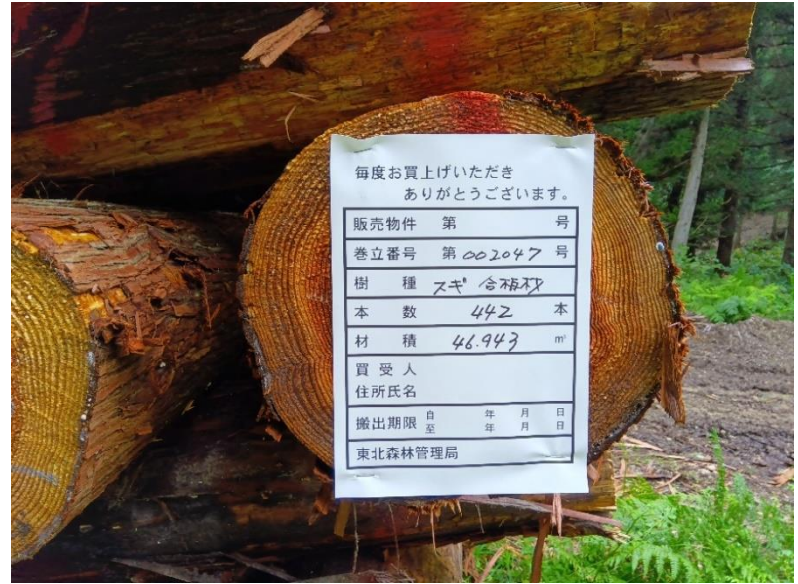 毎度お買上げいただき
ありがとうございます。
販売物件 第 号
巻立番号 第002047号
樹種 スギ 合板材
本数 442 本
材積 46.943 m³
買受人
住所氏名
搬出期限 自 年 月 日
至 年 月 日
東北森林管理局